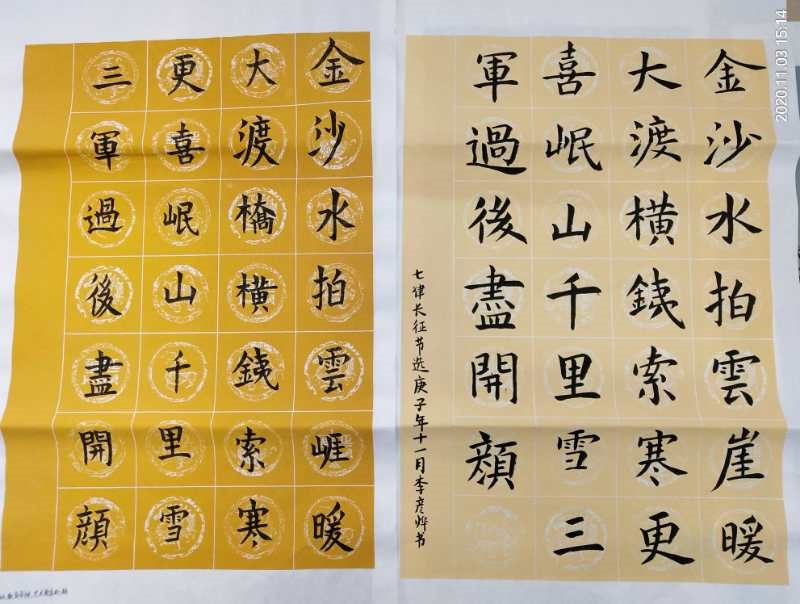 金沙水拍雲崖暖
大渡橫銕索寒更
喜岷山千里雪三
軍過後盡開顔
七律长征节选庚子年十一月李彦烨书
金沙水拍雲崕暖
大渡橋橫銕索寒
更喜岷山千里雪
三軍過後盡開顔
2020.11.03 15:14